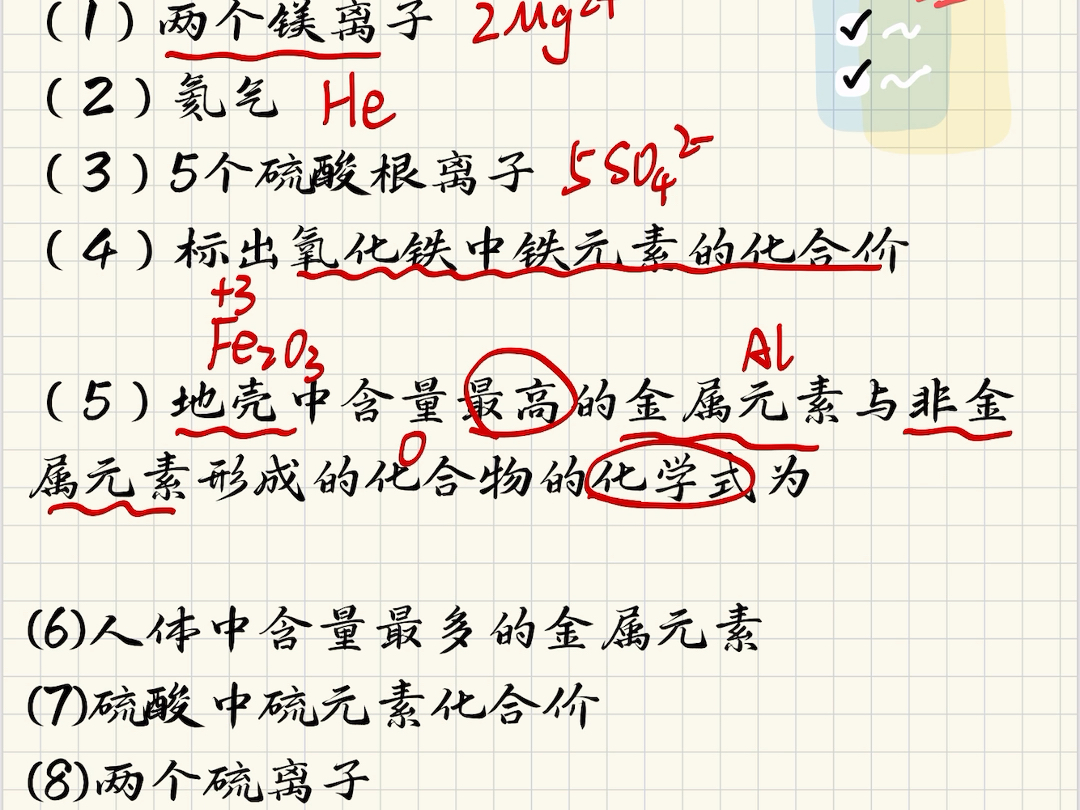 (1)两个镁离子 2Mg²⁺
(2)氦气 He
(3)5个硫酸根离子 5SO₄²⁻
(4)标出氧化铁中铁元素的化合价
+3
Fe₂O₃ Al
(5)地壳中含量最高的金属元素与非金
O
属元素形成的化合物的化学式为
(6)人体中含量最多的金属元素
(7)硫酸中硫元素化合价
(8)两个硫离子